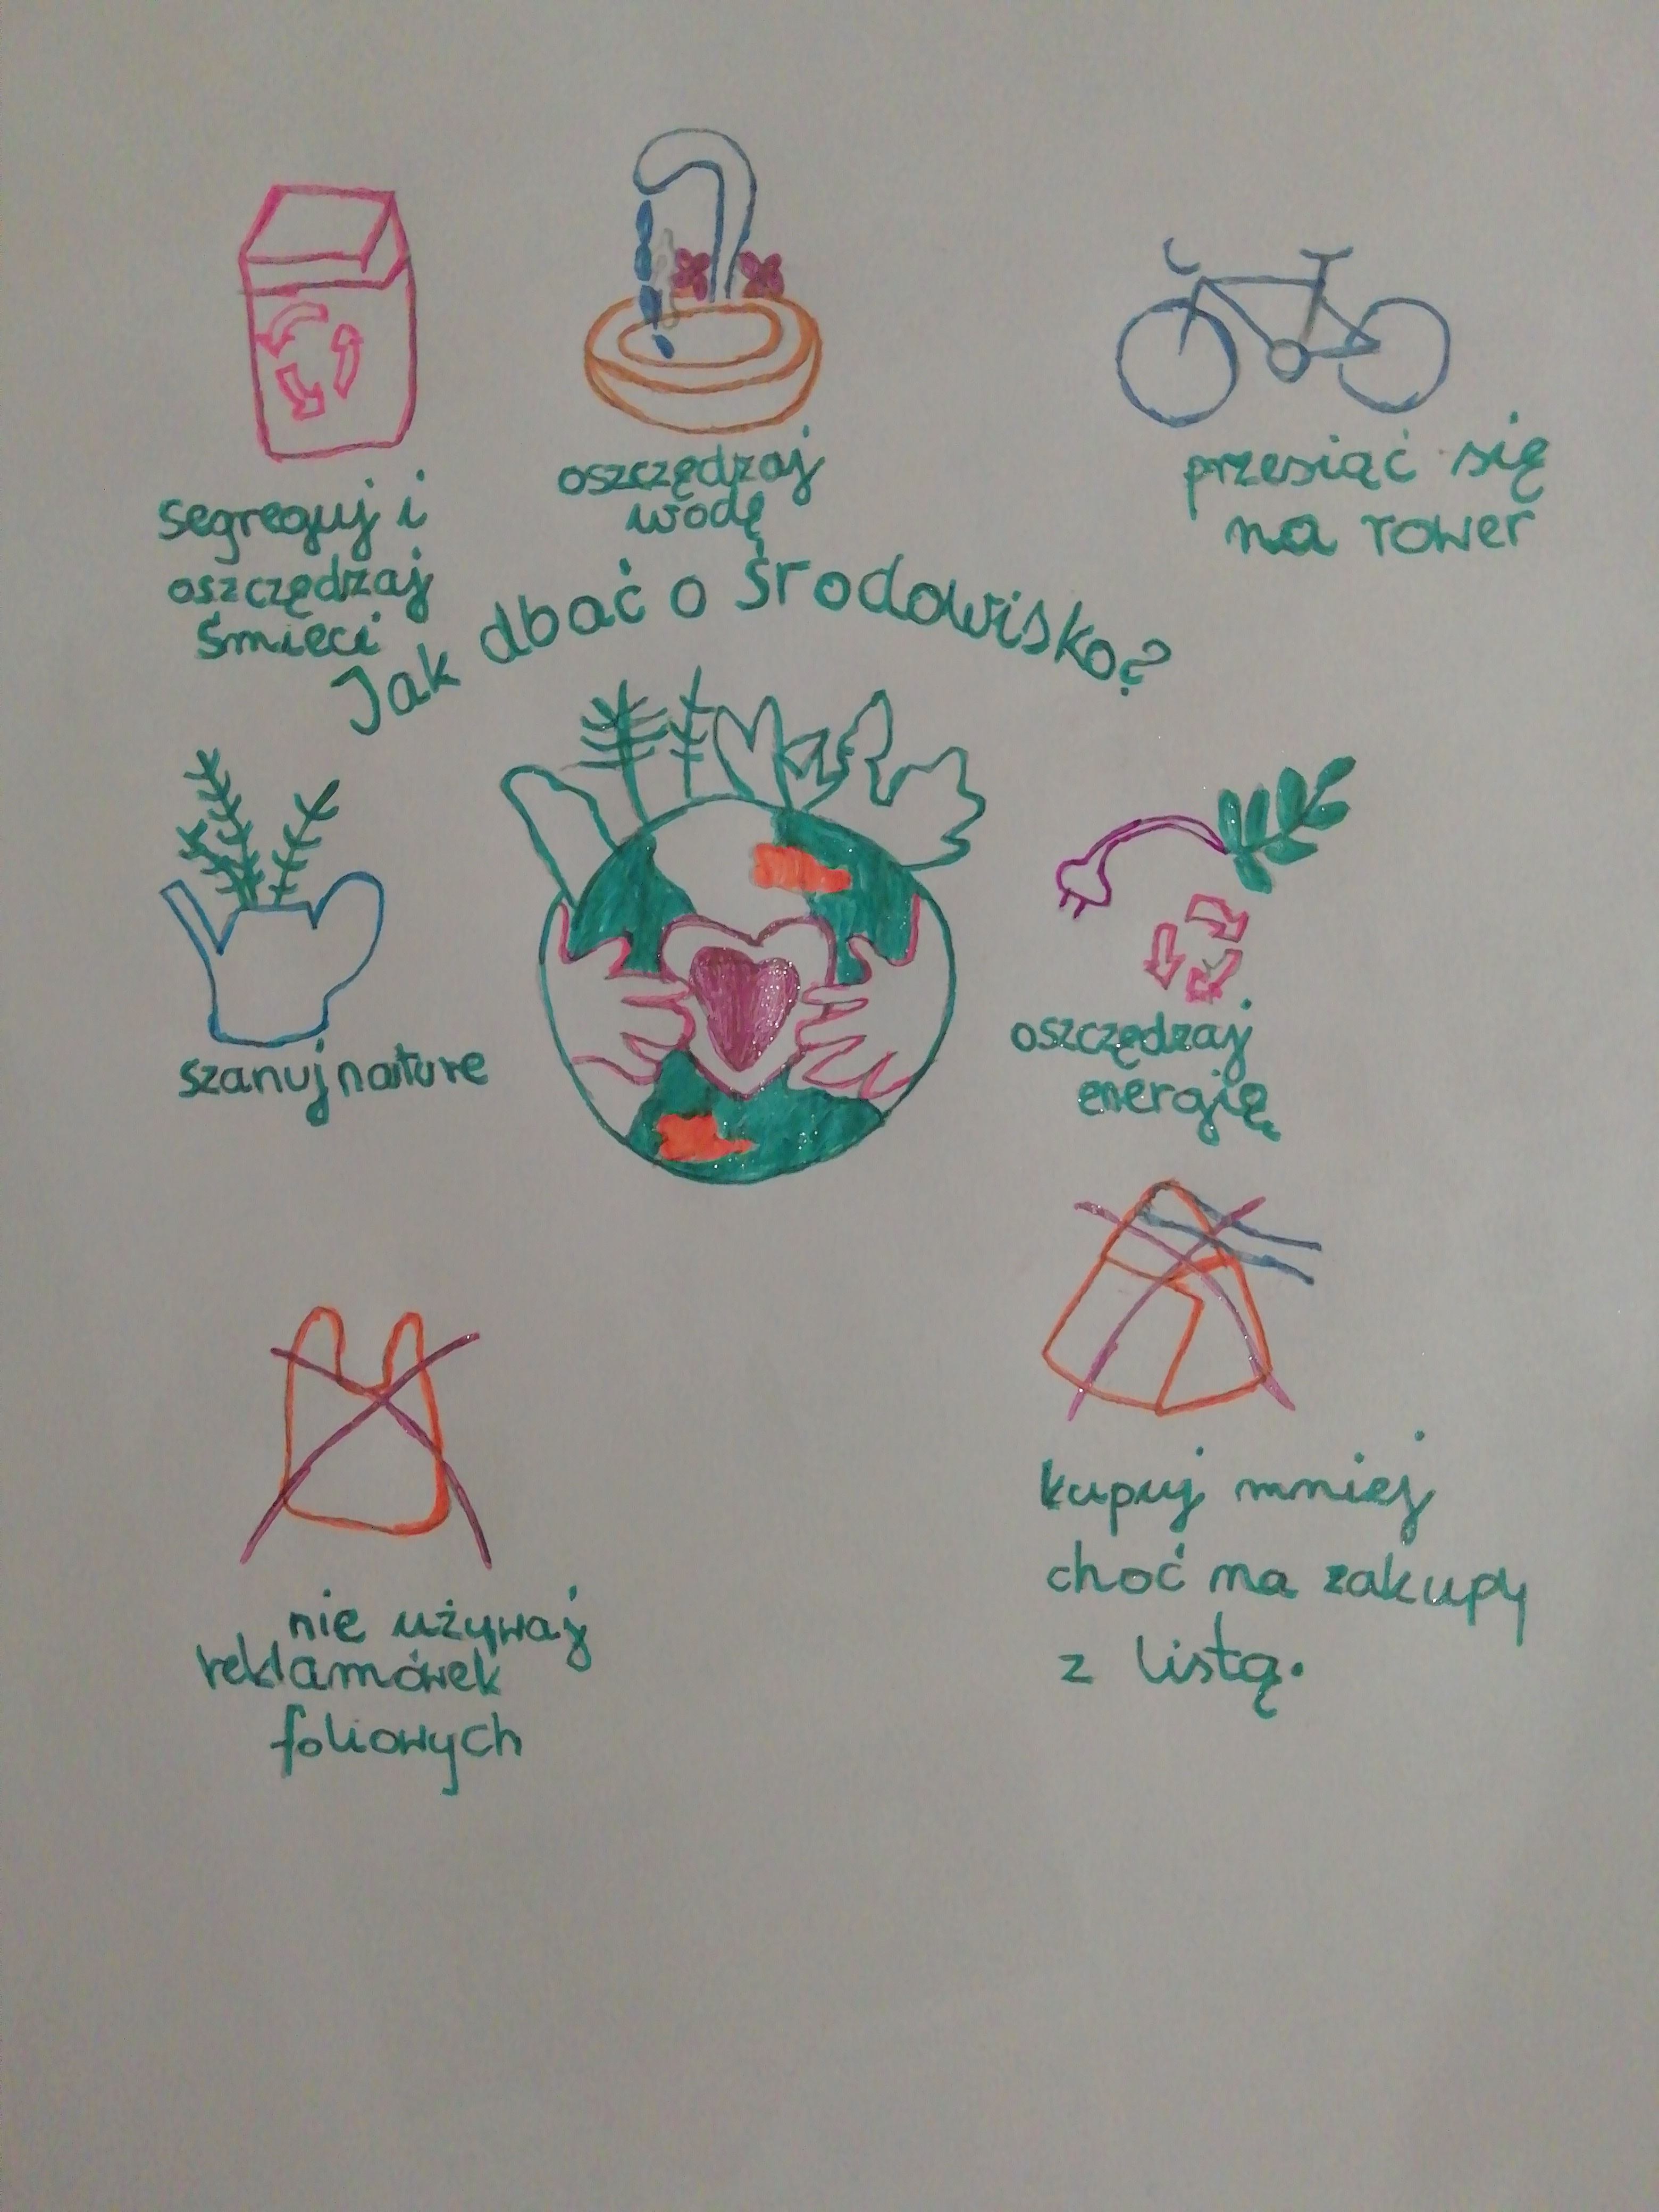 segreguj i
oszczędzaj
śmieci
oszczędzaj
wodę
przesiąć się
na rower
Jak dbać o środowisko?
szanuj nature
oszczędzaj
energię
nie używaj
reklamówek
foliowych
kupuj mniej
choć na zakupy
z listą.